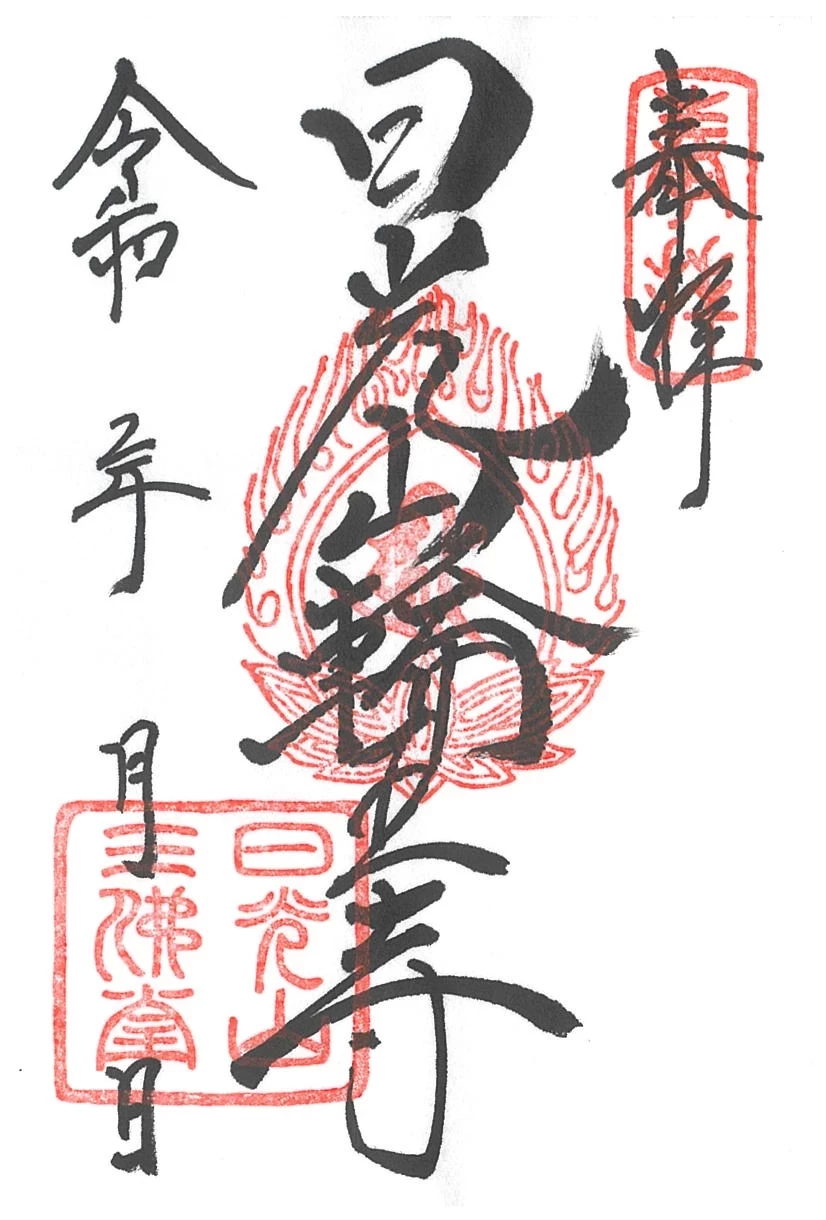 奉拝
日光山輪王寺
令和 年 月 日
奉拝
日光山
三佛堂